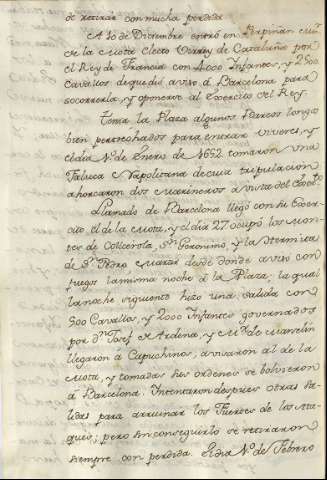 de retirar con mucha perdida.
A 10 de Diciembre entró en Perpiñan Mr.
de la Mota electo Virrey de Cataluña por
el Rey de Francia con 4000 Infantes, y 2500
Cavallos de que dió aviso á Barcelona para
socorrerla, y oponerse al Exercito del Rey.
Tenia la Plaza algunos Barcos longos
bien pertrechados para entrar viveres, y
el dia 1º de Enero de 1652 tomaron una
Faluca Napolitana de cuia tripulacion
ahorcaron dos marineros á vista del
Llamado de Barcelona llegó con su Exer-
cito el de la Mota, y el dia 27 ocupó los Mon-
tes de Collcerola, Sn. Geronimo, y la Hermita
de Sn. Pedro Martir desde donde avisó con
fuegos la misma noche á la Plaza; la qual
la noche siguiente hizo una salida con
500 Cavallos, y 2000 Infantes governados
por Dn. Josef de Ardena, y Mr. de Marsin
llegaron á Capuchinos, avisaron al de la
Mota, y tomadas sus ordenes se bolvieron
á Barcelona. Intentaron despues otras sa-
lidas para arruinar los Fuertes de los Ata-
ques; pero sin conseguirlo se retiraron
siempre con perdida. El dia 1º de Febrero